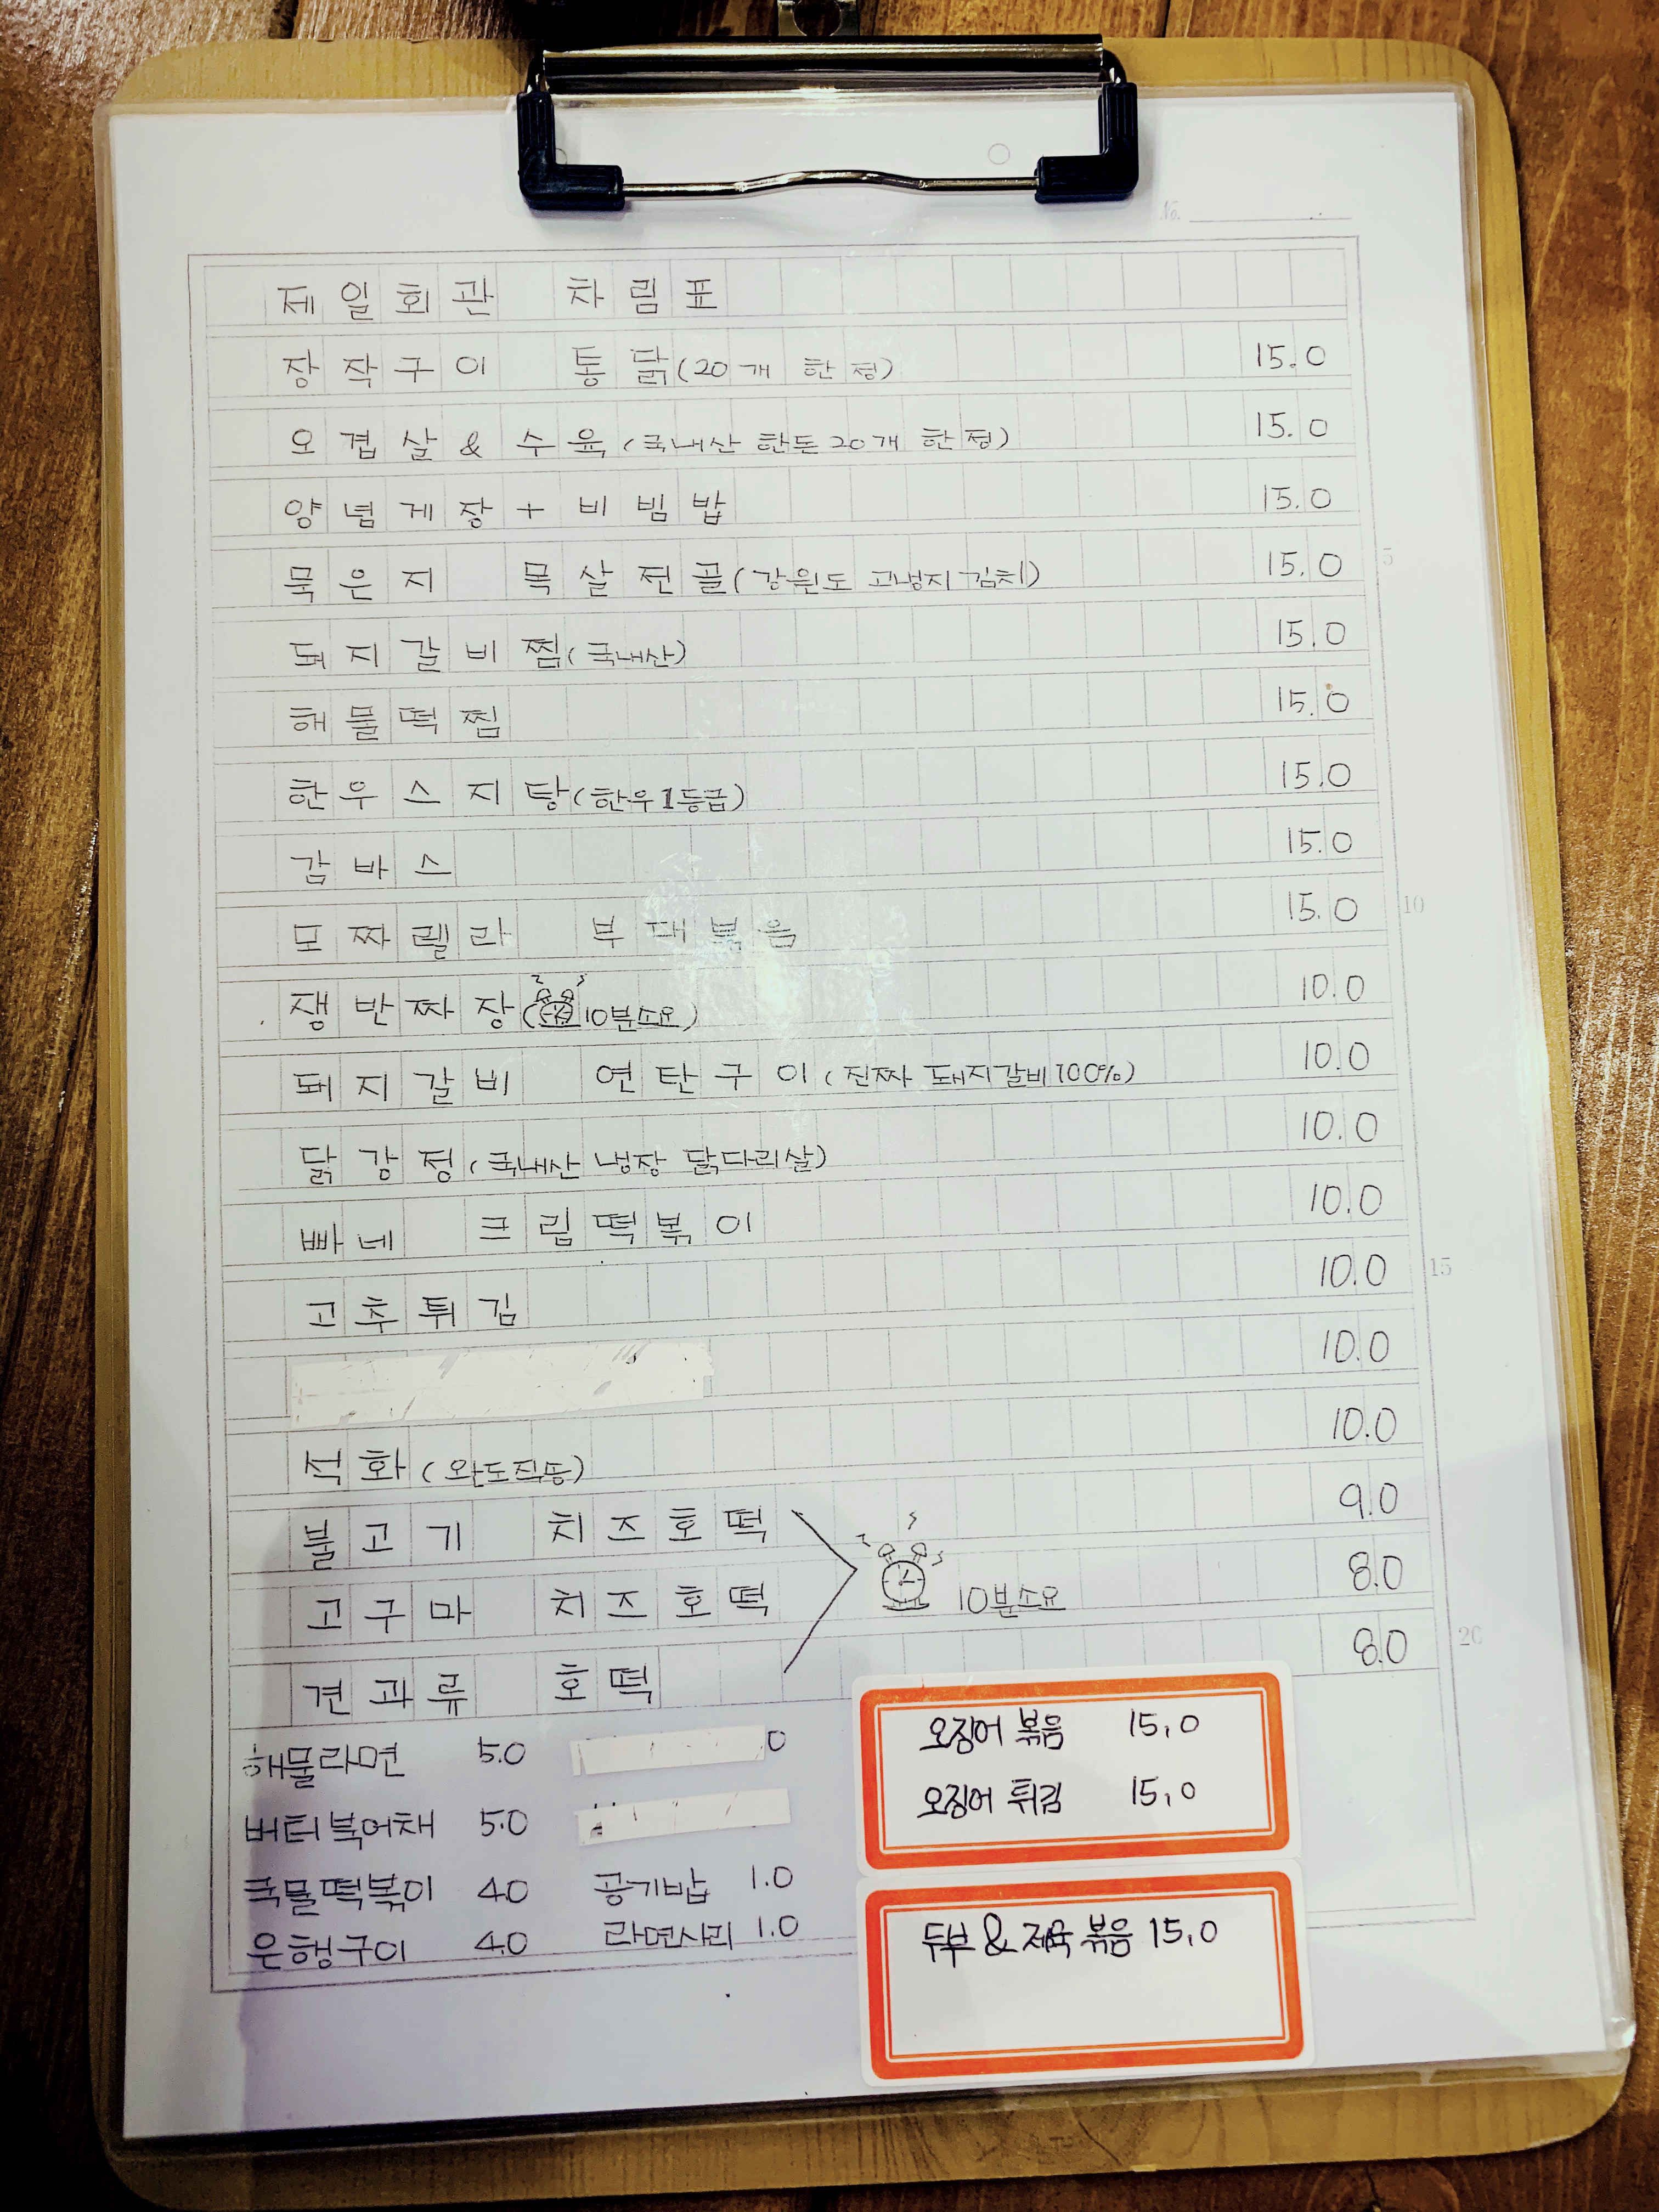 No.
제일회관 차림표
장작구이 통닭(20개 한정) 15.0
오겹살 & 수육(국내산 한돈 20개 한정) 15.0
양념게장 + 비빔밥 15.0
묵은지 목살전골(강원도 고냉지김치) 15.0
5
돼지갈비찜(국내산) 15.0
해물떡찜 15.0
한우스지탕(한우1등급) 15.0
감바스 15.0
모짜렐라 부대볶음 15.0
10
쟁반짜장(10분소요) 10.0
돼지갈비 연탄구이(진짜 돼지갈비100%) 10.0
닭강정(국내산 냉장 닭다리살) 10.0
빠네 크림떡볶이 10.0
고추튀김 10.0
15
10.0
석화(완도직송) 10.0
불고기 치즈호떡 9.0
고구마 치즈호떡 10분소요 8.0
견과류 호떡 8.0
20
해물라면 5.0 0
버터북어채 5.0
국물떡볶이 4.0 공기밥 1.0
은행구이 4.0 라면사리 1.0
오징어 볶음 15,0
오징어 튀김 15,0
두부 & 제육 볶음 15,0